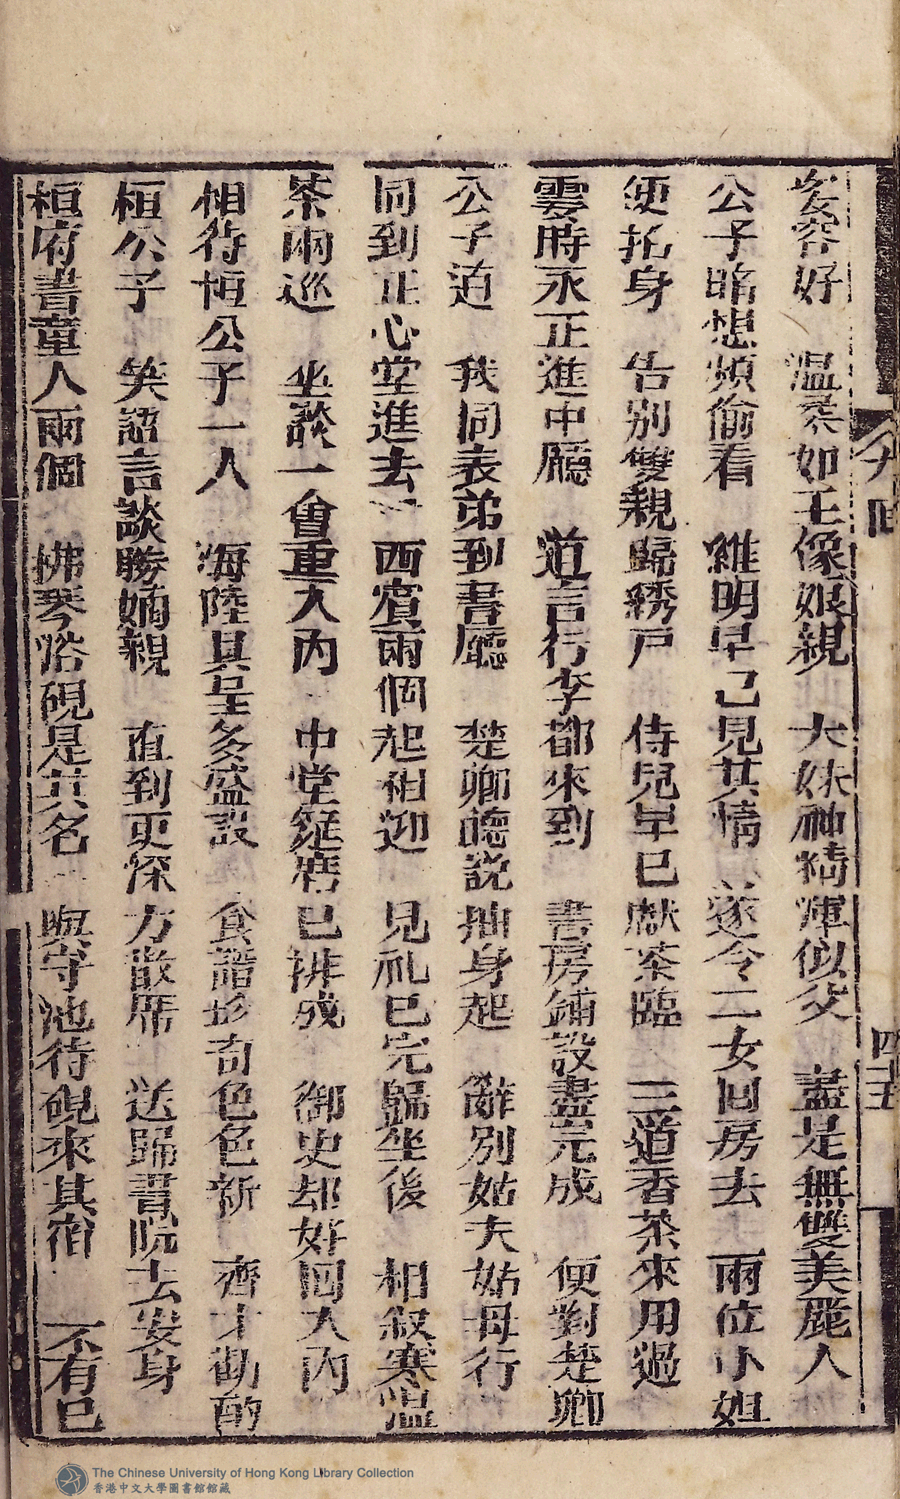 姿容好　温柔如玉像娘親　大妹神精渾似父　盡是無雙美麗人
公子暗想頻偷看　維明早已見其情　遂令二女回房去　兩位小姐
便抽身　告別雙親歸綉户　侍兒早已獻茶臨　三道香茶來用過
雲時永正進中廳　道言行李都來到　書房鋪設盡完成　便對楚卿
公子道　我同表弟到書廳　楚卿聽説抽身起　辭別姑夫姑母行
同到正心堂進去　西賓兩個起相迎　見礼已完歸坐後　相叙寒温
茶兩巡　坐談一會重入內　中堂筵席已排殘　御史却好回入內
相待恒公子一人　海陸具呈多盛設　食譜珍奇色色新　齊才勸酌
桓公子　笑語言談勝嫡親　直到更深方散席　送歸書院去安身
桓府書童人兩個　拂琴浴硯是其名　與守池待硯來其宿　不有已
九回
四十五
The Chinese University of Hong Kong Library Collection
香港中文大學圖書館館藏